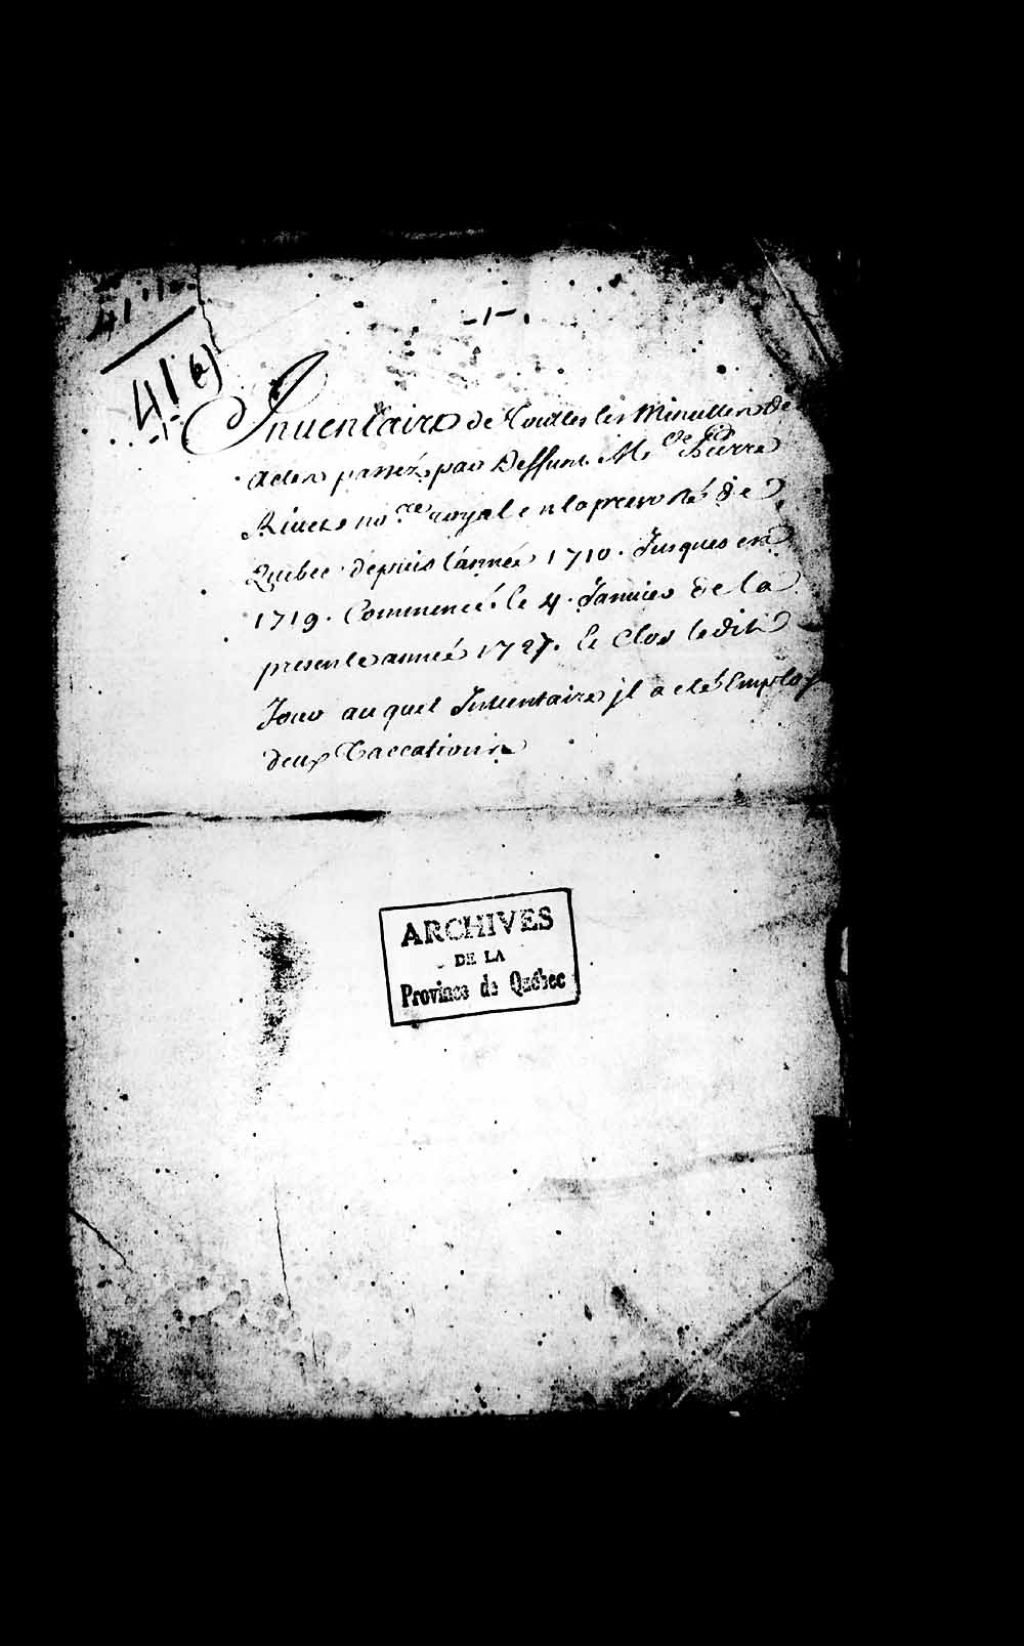 -1-
41
41 a)
-1-
Inuentaire de Touttes les Minuttes de
actes passéz par deffunt Me Pierre
Riuet nore royal en la preuosté de
Quebec depuis l'année 1710. Jusques en
1719. Commencé le 4. Januier de la
presente année 1727. & Clos ledit
Jour auquel Inuentaire jl a eté Employé
deux Vaccations
ARCHIVES
DE LA
Province de Québec